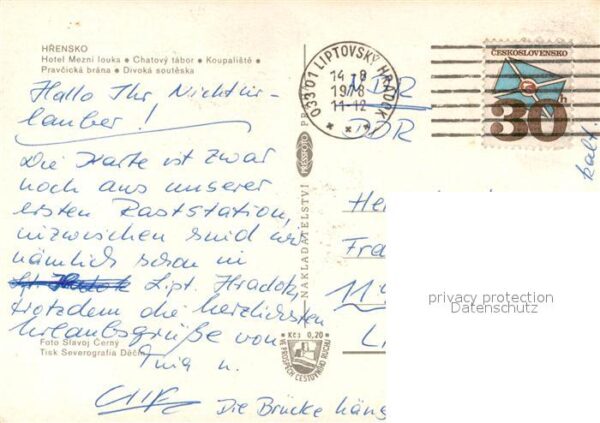 HŘENSKO
Hotel Mezní louka ● Chatový tábor ● Koupaliště ●
Pravčická brána ● Divoká soutěska
Hallo Ihr Nichtur-
lauber!
Die Karte ist zwar
noch aus unserer
ersten Raststation,
inzwischen sind wir
nämlich schon in
Lipt. Hradok,
trotzdem die herzlichsten
Urlaubsgrüße von
u.
Die Brücke häng
Foto Slavoj Černý
Tisk Severografia Děčín
NAKLADATELSTVÍ
PRESSFOTO
PR
Kčs 0,20
VE PROSPĚCH CESTOVNÍHO RUCHU
033 01 LIPTOVSKÝ HRÁDOK
14 -8
1978
11-12
ČESKOSLOVENSKO
30h
DDR
He
Fra
kalt.
privacy protection
Datenschutz